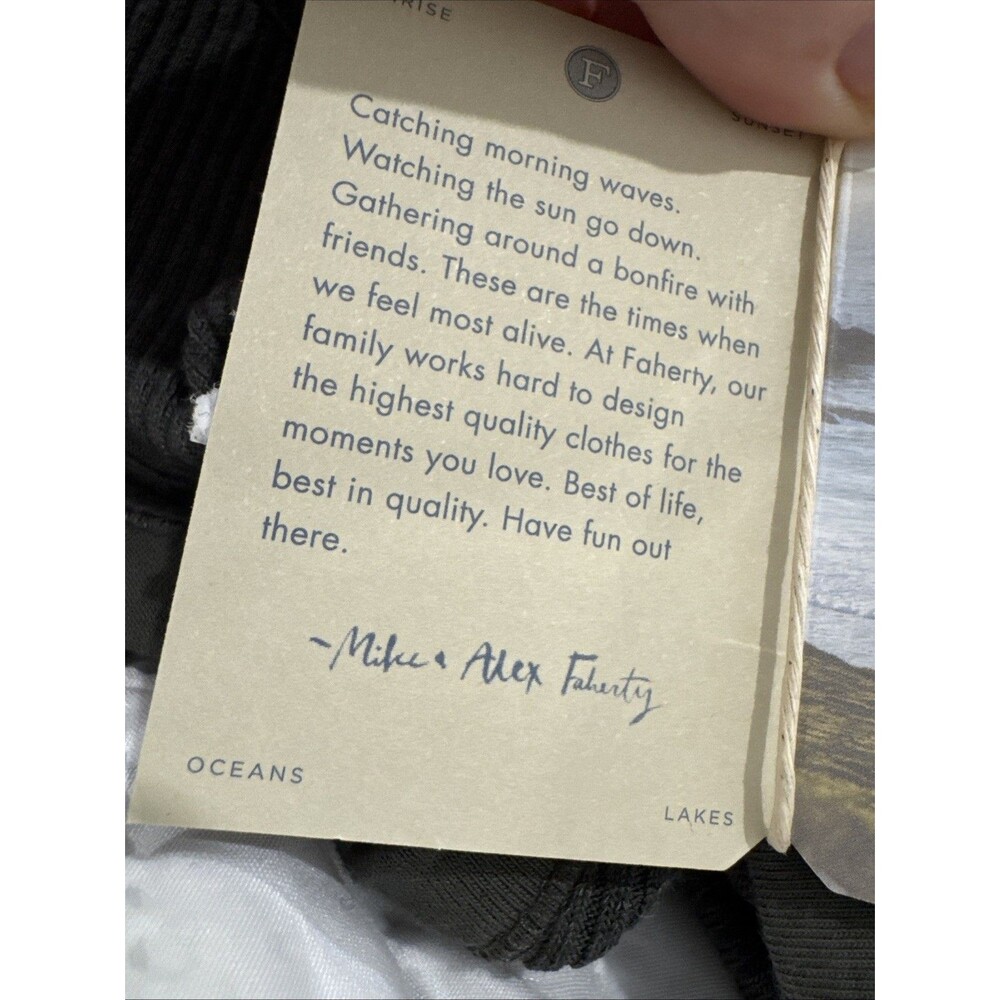 RISE
F
SUNSET
Catching morning waves.
Watching the sun go down.
Gathering around a bonfire with
friends. These are the times when
we feel most alive. At Faherty, our
family works hard to design
the highest quality clothes for the
moments you love. Best of life,
best in quality. Have fun out
there.
-Mike & Alex Faherty
OCEANS
LAKES